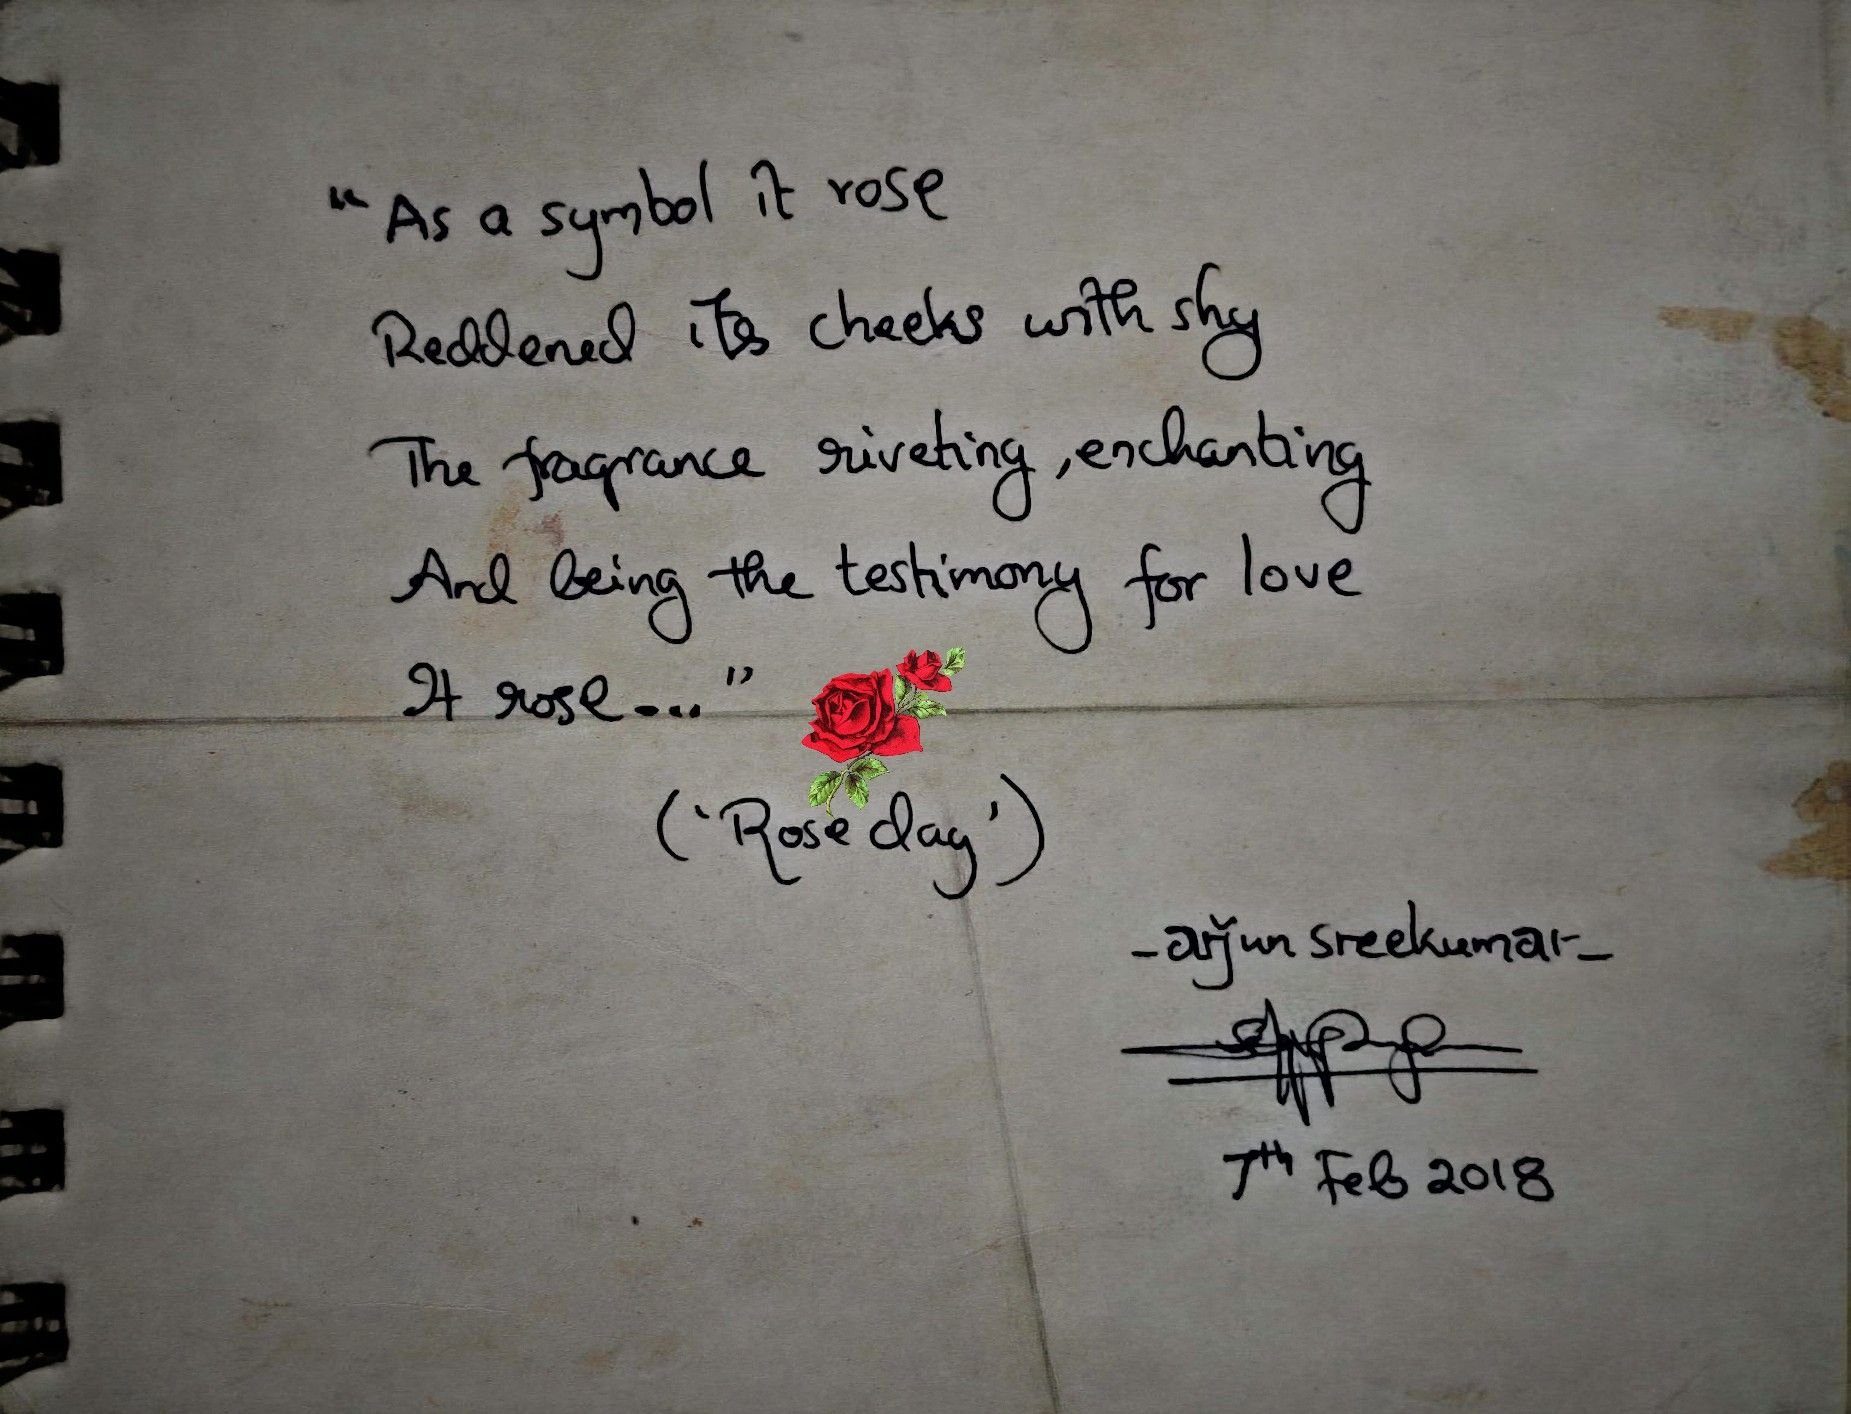 "As a symbol it rose
Reddened its cheeks with shy
The fragrance riveting, enchanting
And being the testimony for love
It rose...."
('Rose day')
-arjun sreekumar-
7th Feb 2018